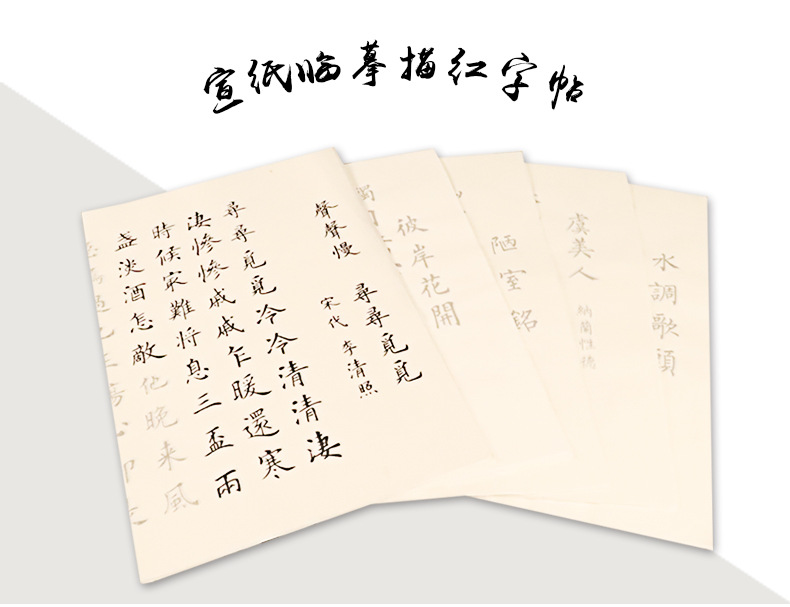 宣纸临摹描红字帖
聲聲慢 尋尋覓覓
宋代 李清照
尋尋覓覓冷冷清清淒
淒惨惨戚戚乍暖還寒
時候㝡難将息三盃雨
盏淡酒怎敵他晚来風
彼岸花開
陋室銘
虞美人
納蘭性德
水調歌頭